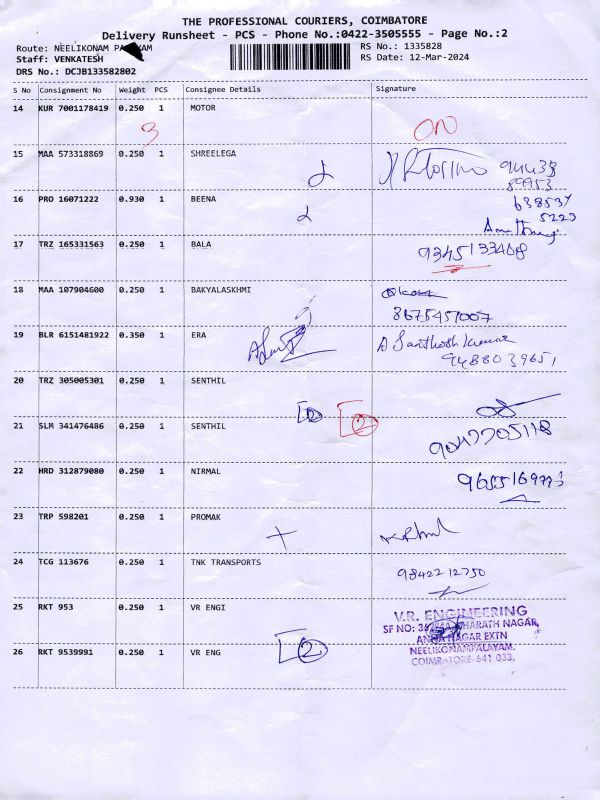 THE PROFESSIONAL COURIERS, COIMBATORE
Delivery Runsheet - PCS - Phone No.:0422-3505555 - Page No.:2
Route: NEELIKONAM
Staff: VENKATESH
DRS No.: DCJB133582802
RS No.: 1335828
RS Date: 12-Mar-2024
S No Consignment No Weight PCS Consignee Details Signature
14 KUR 7001178419 0.250 1 MOTOR ON
3
15 MAA 573318869 0.250 1 SHREELEGA 94438
89953
16 PRO 16071222 0.930 1 BEENA 638537
5223
17 TRZ 165331563 0.250 1 BALA 9345133468
18 MAA 107904600 0.250 1 BAKYALASKHMI
8675451007
19 BLR 6151481922 0.350 1 ERA A Santhosh Kumar
9488039651
20 TRZ 305005301 0.250 1 SENTHIL
2
21 SLM 341476486 0.250 1 SENTHIL 9047705118
22 HRD 312879080 0.250 1 NIRMAL 9655169773
23 TRP 598201 0.250 1 PROMAK
24 TCG 113676 0.250 1 TNK TRANSPORTS 9842212750
25 RKT 953 0.250 1 VR ENGI
26 RKT 9539991 0.250 1 VR ENG 2
V.R. ENGINEERING
SF NO: BHARATH NAGAR,
ANNA NAGAR EXTN
NEELIKONAMPALAYAM.
COIMBATORE-641 033.